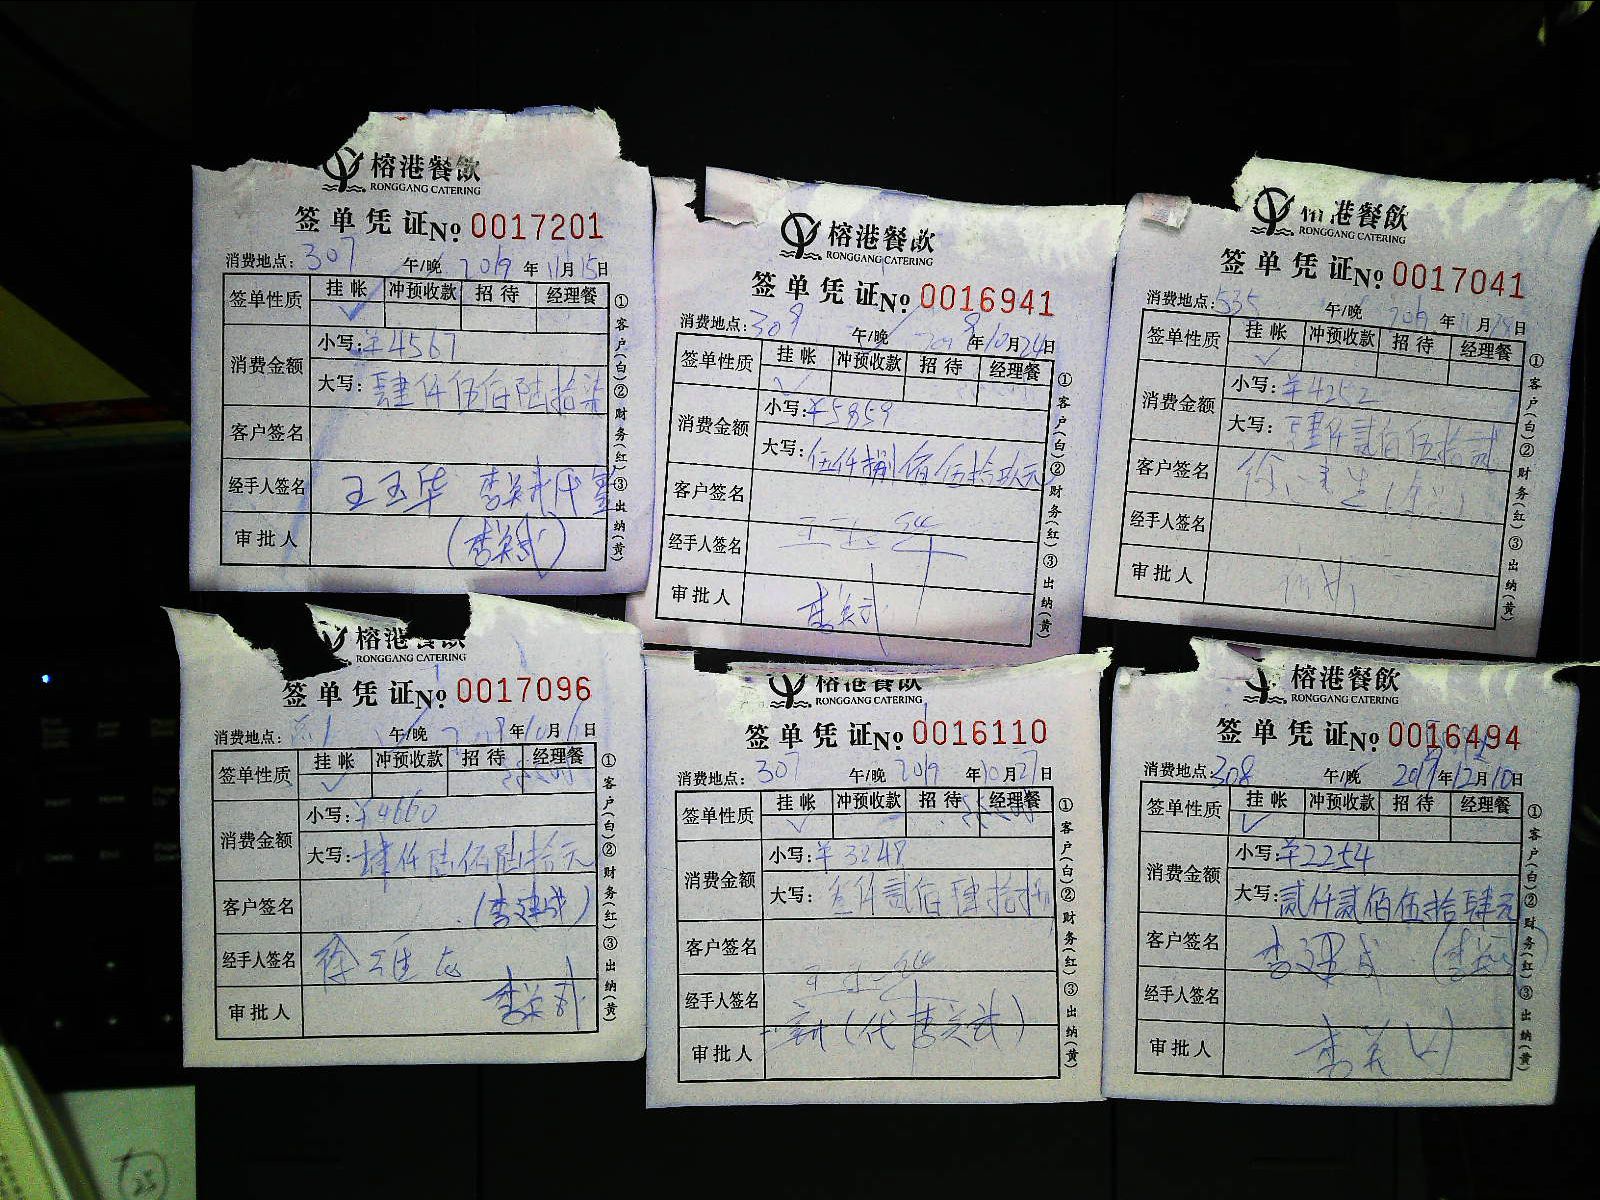 榕港餐飲
RONGGANG CATERING
签单凭证№ 0017201
消费地点: 307 午/晚 2019年11月15日
签单性质 挂帐 冲预收款 招待 经理餐
✓
消费金额 小写: ¥4567
大写: 肆仟伍佰陆拾柒
客户签名
经手人签名 王玉华 李关武代签
审批人 (李关武)
①客户(白)②财务(红)③出纳(黄)
榕港餐飲
RONGGANG CATERING
签单凭证№ 0016941
消费地点: 309 午/晚 年10月24日
签单性质 挂帐 冲预收款 招待 经理餐
✓
消费金额 小写: ¥5859
大写: 伍仟捌佰伍拾玖元
客户签名
经手人签名 王玉华
审批人 李关武
①客户(白)②财务(红)③出纳(黄)
榕港餐飲
RONGGANG CATERING
签单凭证№ 0017041
消费地点: 535 午/晚 2019年11月日
签单性质 挂帐 冲预收款 招待 经理餐
✓
消费金额 小写: ¥4252
大写: 肆仟贰佰伍拾贰
客户签名 徐
经手人签名
审批人
①客户(白)②财务(红)③出纳(黄)
榕港餐飲
RONGGANG CATERING
签单凭证№ 0017096
消费地点: 午/晚 年10月日
签单性质 挂帐 冲预收款 招待 经理餐
✓
消费金额 小写: ¥4660
大写: 肆仟陆佰陆拾元
客户签名 (李建成)
经手人签名 徐
审批人 李关武
①客户(白)②财务(红)③出纳(黄)
榕港餐飲
RONGGANG CATERING
签单凭证№ 0016110
消费地点: 307 午/晚 2019年10月27日
签单性质 挂帐 冲预收款 招待 经理餐
✓
消费金额 小写: ¥3248
大写: 叁仟贰佰肆拾捌
客户签名
经手人签名 王玉华
(代李关武)
审批人
①客户(白)②财务(红)③出纳(黄)
榕港餐飲
RONGGANG CATERING
签单凭证№ 0016494
消费地点: 308 午/晚 2019年12月10日
签单性质 挂帐 冲预收款 招待 经理餐
✓
消费金额 小写: ¥2254
大写: 贰仟贰佰伍拾肆元
客户签名 李建成
经手人签名
审批人 李关
①客户(白)②财务(红)③出纳(黄)